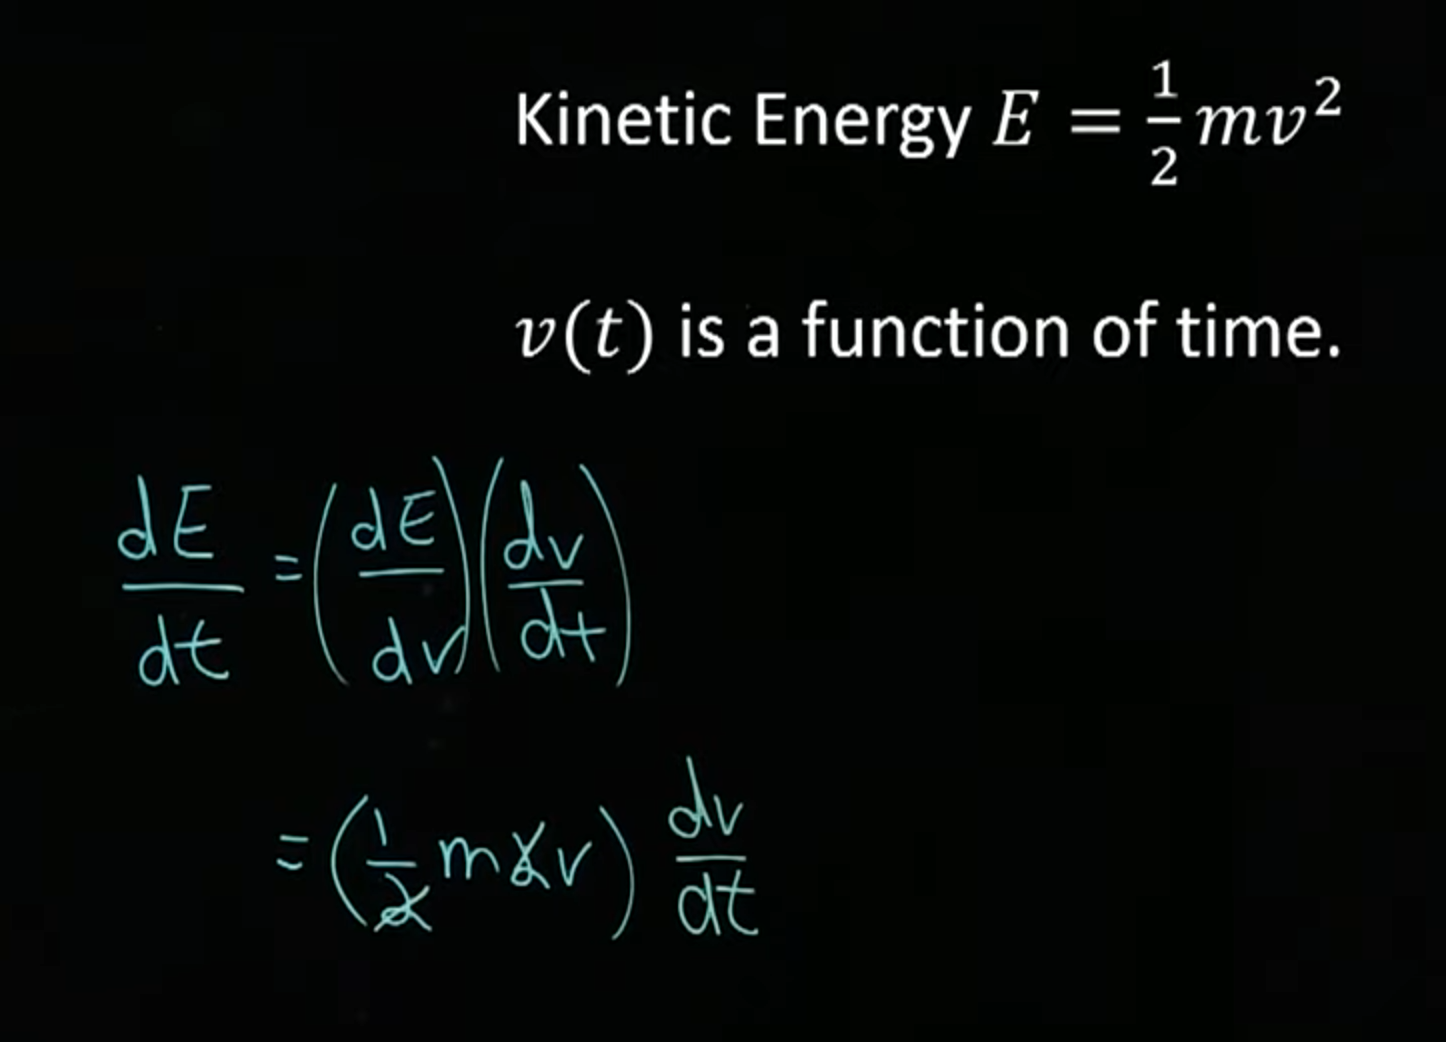 Kinetic Energy E = \frac{1}{2}mv^2
v(t) is a function of time.
\frac{dE}{dt} = \left(\frac{dE}{dv}\right)\left(\frac{dv}{dt}\right)
= \left(\frac{1}{\cancel{2}}m\cancel{2}v\right)\frac{dv}{dt}